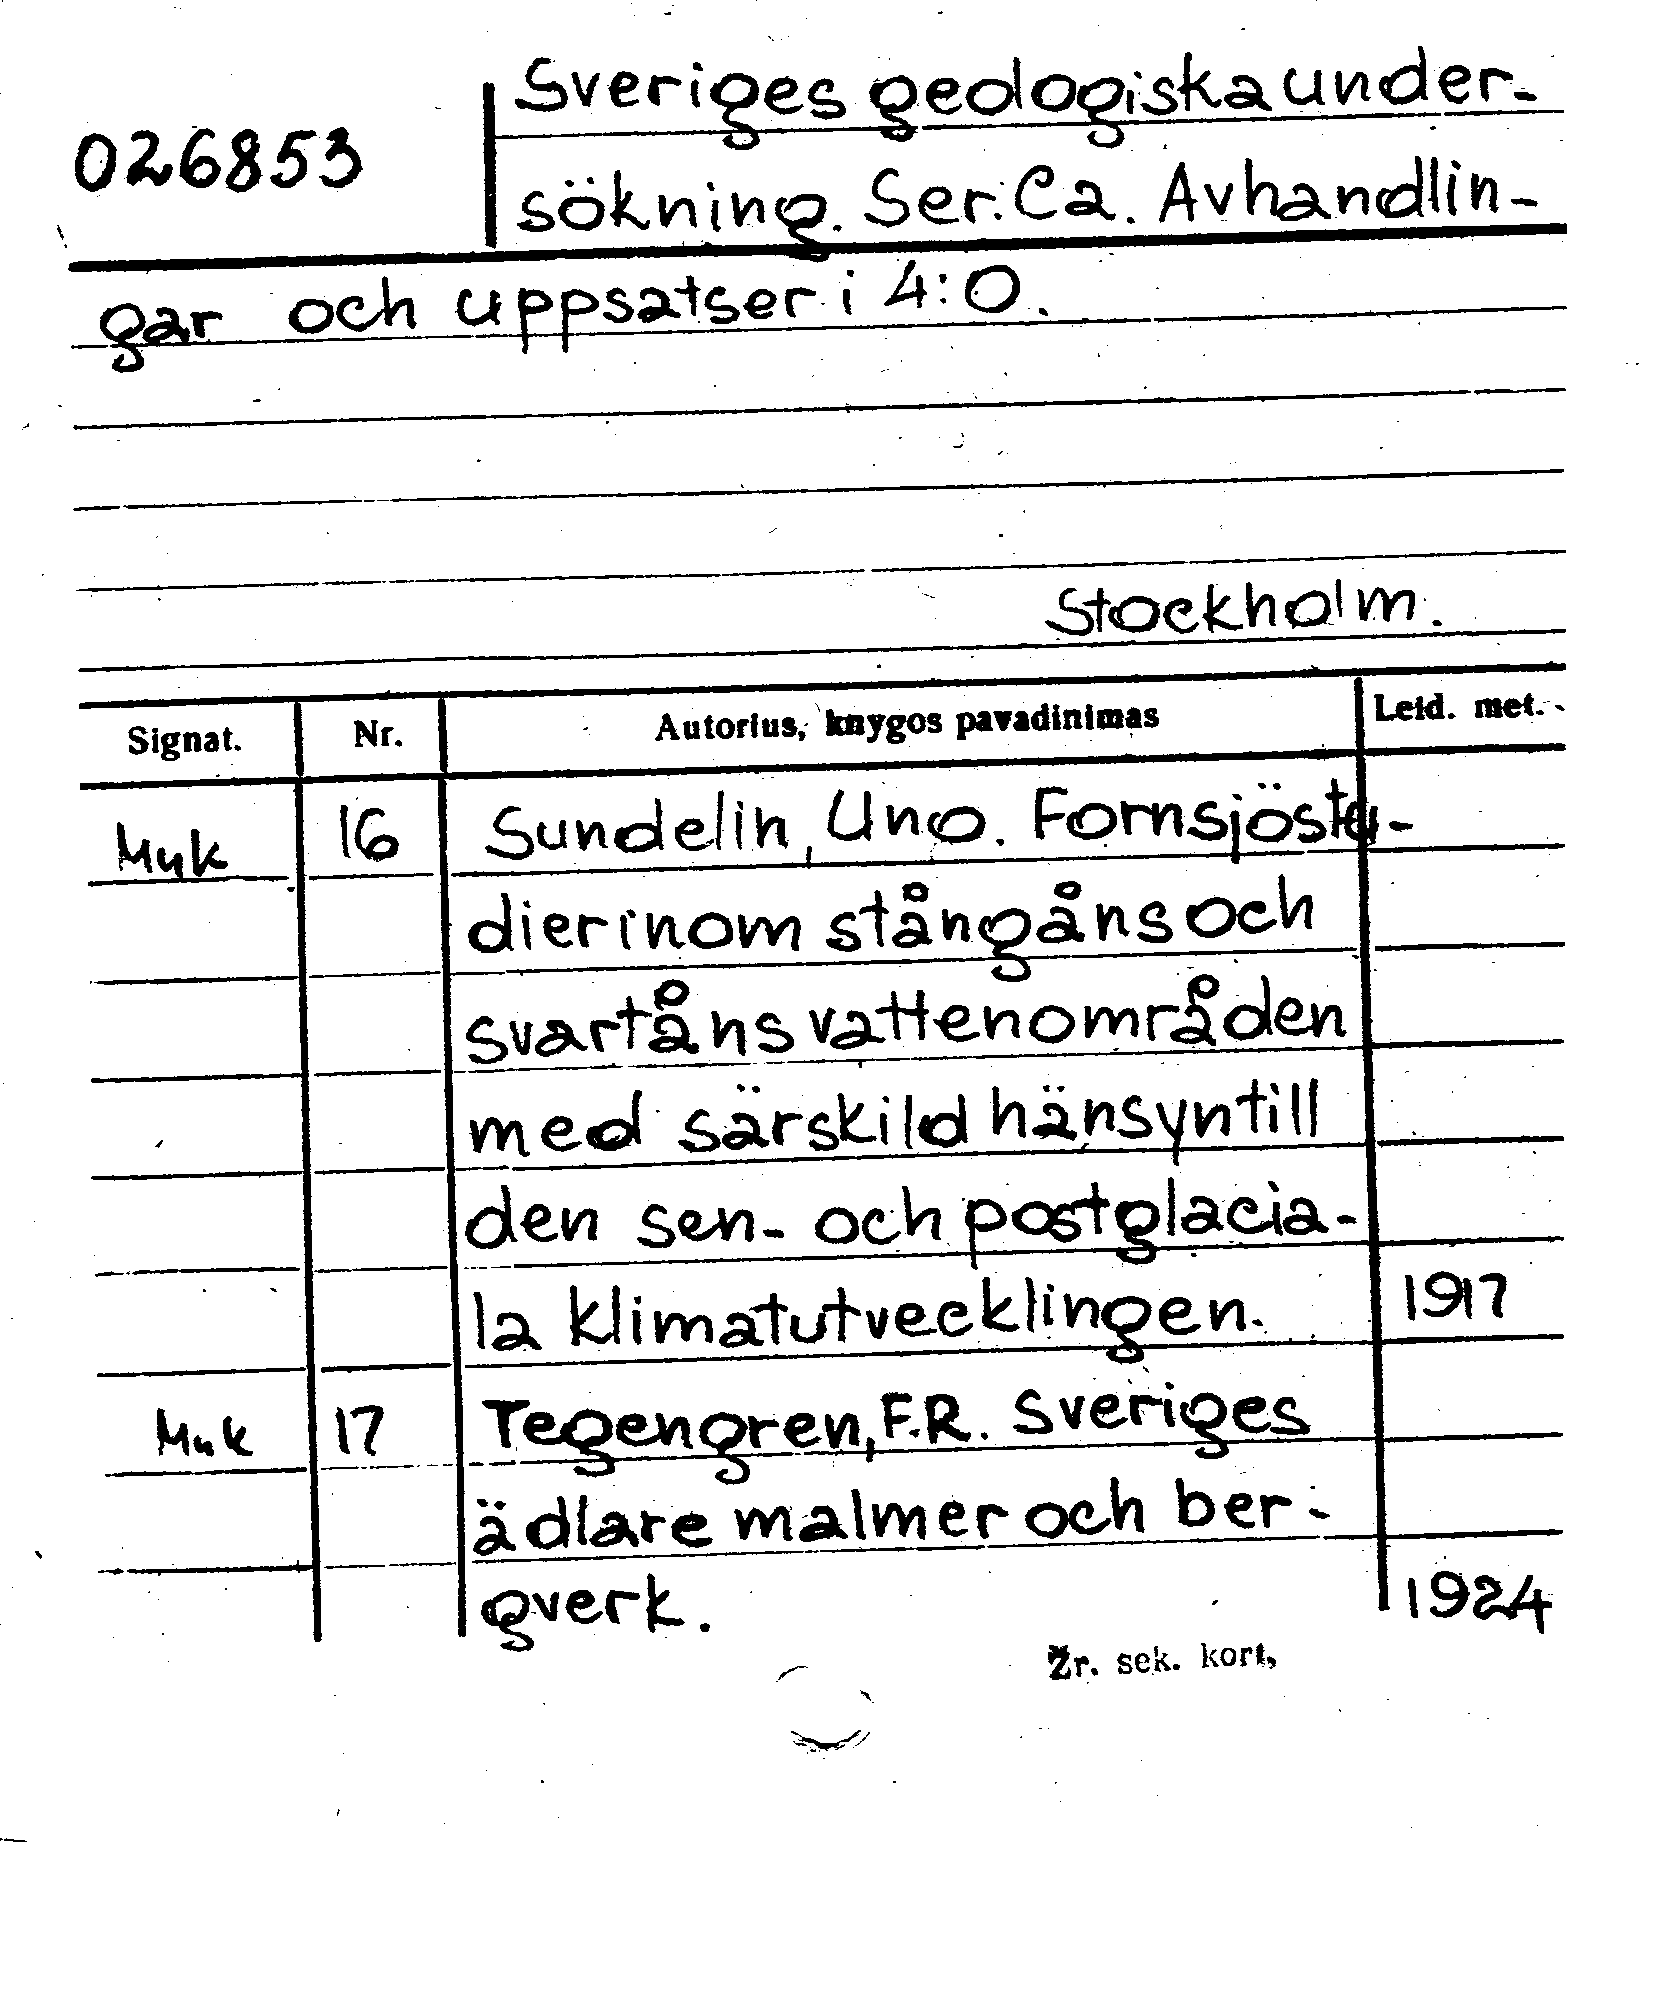 Sveriges geologiska under-
026853
sökning. Ser. Ca. Avhandlin-
gar och uppsatser i 4:0.
Stockholm.
Signat. Nr. Autorius, knygos pavadinimas Leid. met.
Muk 16 Sundelin, Uno. Fornsjöstu-
dier inom stångåns och
svartåns vattenområden
med särskild hänsyn till
den sen- och postglacia-
la klimatutvecklingen. 1917
Muk 17 Tegengren, F.R. Sveriges
ädlare malmer och ber-
gverk. 1924
Žr. sek. kort,